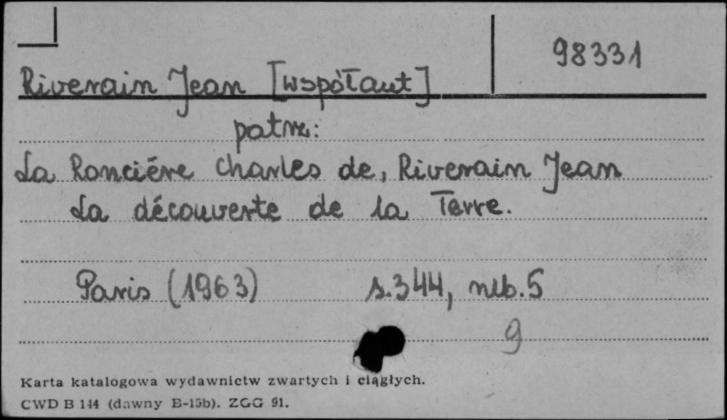 98331
Riverain Jean [współaut]
patrz:
La Ronciére Charles de, Riverain Jean
La découverte de la Terre.
Paris (1963) s.344, nlb.5
9
Karta katalogowa wydawnictw zwartych i ciągłych.
CWD B 144 (dawny B-15b). ZGG 91.